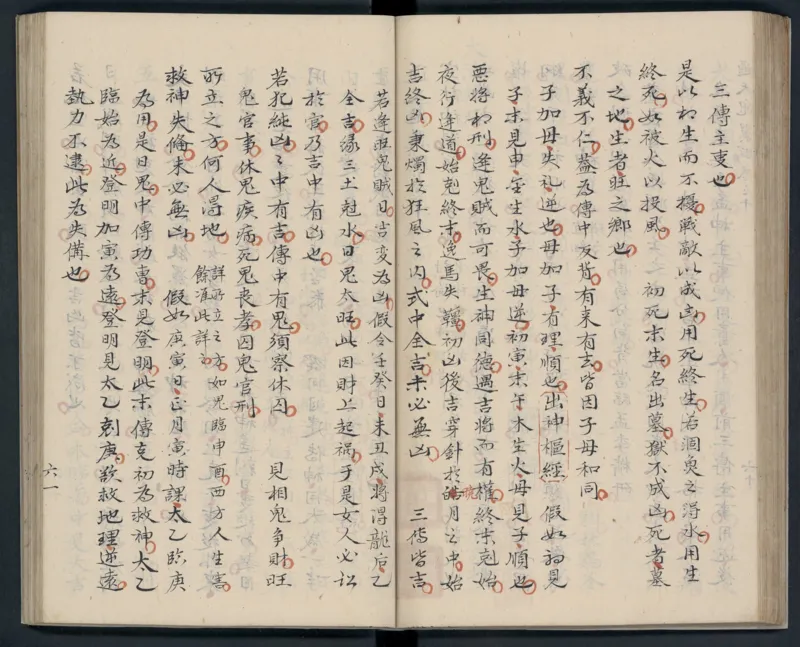 三傳主吏也
是以相生而不擾戰敵以成凶用死終生若涸魚之得水用生
終死如被火以投風 初死末生名出墓獄不成凶死者墓
之地生者旺之鄉也
不義不仁蓋為傳中反背有末有玄皆因子母和同
子加母失礼逆也母加子有理順也出神樞經 假如初見
子末見申金生水子加母逆初寅末午木生火母見子順也
惡將相刑逢鬼賊而可畏生神同德遇吉將而有權終末剋始
夜行逢道始剋終末逸馬失韁初凶後吉穿針於皓月之中始
吉終凶秉燭於狂風之內式中全吉未必無凶 三傳皆吉
若逢旺鬼賊日吉变為凶假令壬癸日未丑戌將得龍后乙
全吉緣三土尅水日鬼太旺此因財上起禍于是女人必訟
於官乃吉中有凶也
若犯純凶之中有吉傳中有鬼須察休囚 見相鬼争財旺
鬼官事休鬼疾病死鬼丧孝囚鬼官刑
所立之方何人得地 詳所立之方如鬼臨申酉西方人生害
餘准此詳之
救神失俻未必無凶 假如庚寅日正月寅時課太乙臨庚
為用是日鬼中傳功曹末見登明此末傳克初為救神太乙
臨始為近登明加寅為遠登明見太乙剋庚欲救地理逆遠
執力不逮此為失備也
六一